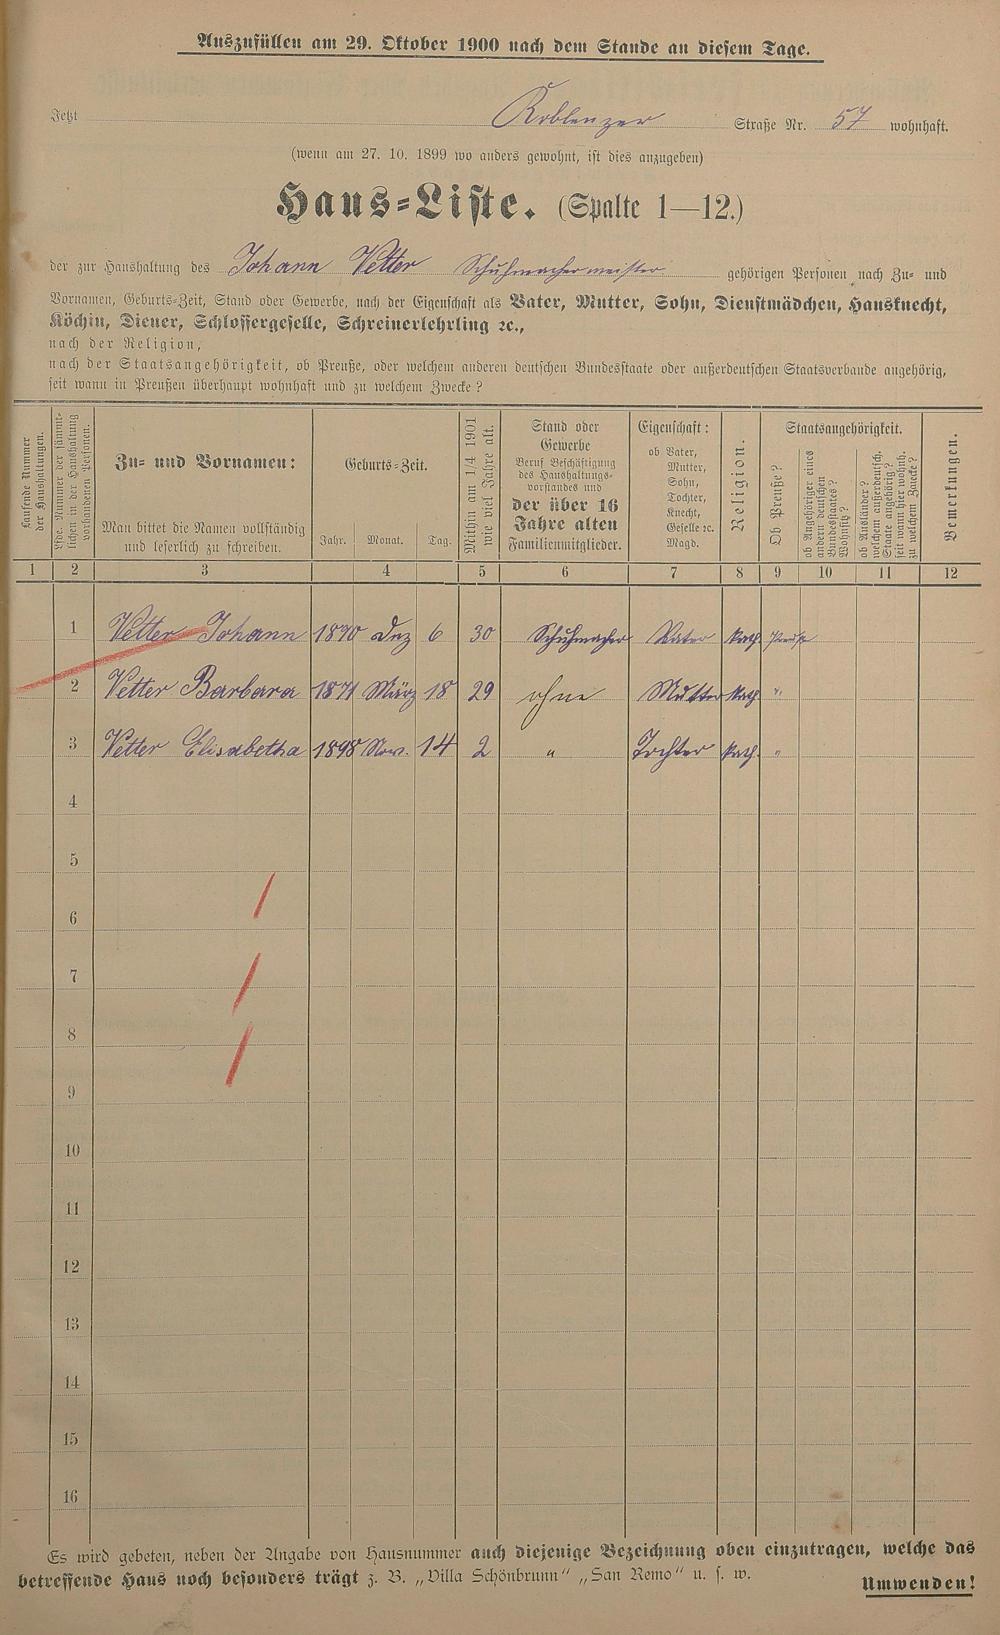 Auszufüllen am 29. Oktober 1900 nach dem Stande an diesem Tage.
Jetzt Koblenzer Straße Nr. 57 wohnhaft.
(wenn am 27. 10. 1899 wo anders gewohnt, ist dies anzugeben)
Haus-Liste. (Spalte 1—12.)
der zur Haushaltung des Johann Vetter Schuhmachermeister gehörigen Personen nach Zu- und
Vornamen, Geburts-Zeit, Stand oder Gewerbe, nach der Eigenschaft als Vater, Mutter, Sohn, Dienstmädchen, Hausknecht,
Köchin, Diener, Schlossergeselle, Schreinerlehrling ꝛc.,
nach der Religion,
nach der Staatsangehörigkeit, ob Preuße, oder welchem anderen deutschen Bundesstaate oder außerdeutschen Staatsverbande angehörig,
seit wann in Preußen überhaupt wohnhaft und zu welchem Zwecke?
Laufende Nummer
der Haushaltungen.
Lfde. Nummer der sämmt-
lichen in der Haushaltung
vorhandenen Personen.
Zu- und Vornamen:
Man bittet die Namen vollständig
und leserlich zu schreiben.
Geburts-Zeit.
Jahr. Monat. Tag.
Mithin am 1/4 1901
wie viel Jahre alt.
Stand oder
Gewerbe
Beruf Beschäftigung
des Haushaltungs-
vorstandes und
der über 16
Jahre alten
Familienmitglieder.
Eigenschaft:
ob Vater,
Mutter,
Sohn,
Tochter,
Knecht,
Geselle ꝛc.
Magd.
Religion.
Staatsangehörigkeit.
Ob Preuße?
ob Angehöriger eines
andern deutschen
Bundesstaates?
Wohnsitz?
ob Ausländer?
welchem außerdeutsch.
Staate angehörig?
seit wann hier wohnh.
zu welchem Zwecke?
Bemerkungen.
1 2 3 4 5 6 7 8 9 10 11 12
1 Vetter Johann 1870 Dez 6 30 Schuhmacher Vater kath. Preuße
2 Vetter Barbara 1871 März 18 29 ohne Mutter kath. "
3 Vetter Elisabetha 1898 Nov. 14 2 " Tochter kath. "
4
5
6
7
8
9
10
11
12
13
14
15
16
Es wird gebeten, neben der Angabe von Hausnummer auch diejenige Bezeichnung oben einzutragen, welche das
betreffende Haus noch besonders trägt z. B. „Villa Schönbrunn" „San Remo" u. s. w.
Umwenden!